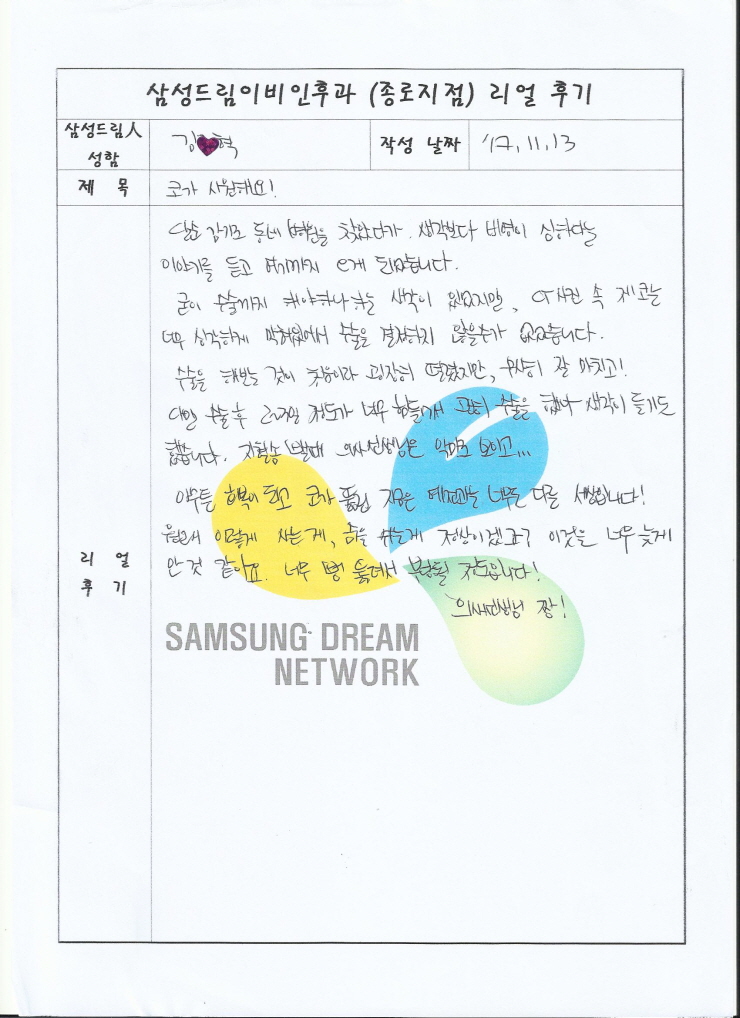 삼성드림이비인후과 (종로지점) 리얼 후기
삼성드림人
성함
김 혁
작성 날짜
'17.11.13
제 목
코가 시원해요!
단순 감기로 동네 병원을 찾았다가. 생각보다 비염이 심하다는
이야기를 듣고 여기까지 오게 되었습니다.
굳이 수술까지 해야하나 하는 생각이 있었지만, CT사진 속 제 코는
너무 심각하게 막혀있어서 수술을 결정하지 않을수가 없었습니다.
수술을 해보는 것이 처음이라 굉장히 떨렸지만, 무사히 잘 마치고!
대신 수술 후 2~3일 정도가 너무 힘들어서 괜히 수술을 했나 생각이 들기도
했습니다. 지혈솜 뺄때 의사선생님은 악마로 보이고...
아무튼 회복이 되고 코가 뚫린 지금은 예전과는 너무도 다른 세상입니다!
원래 이렇게 사는게, 숨을 쉬는게 정상이겠죠? 이것을 너무 늦게
안 것 같아요. 너무 뻥 뚫려서 부담될 정도입니다!
의사선생님 짱!
리 얼
후 기
SAMSUNG DREAM
NETWORK